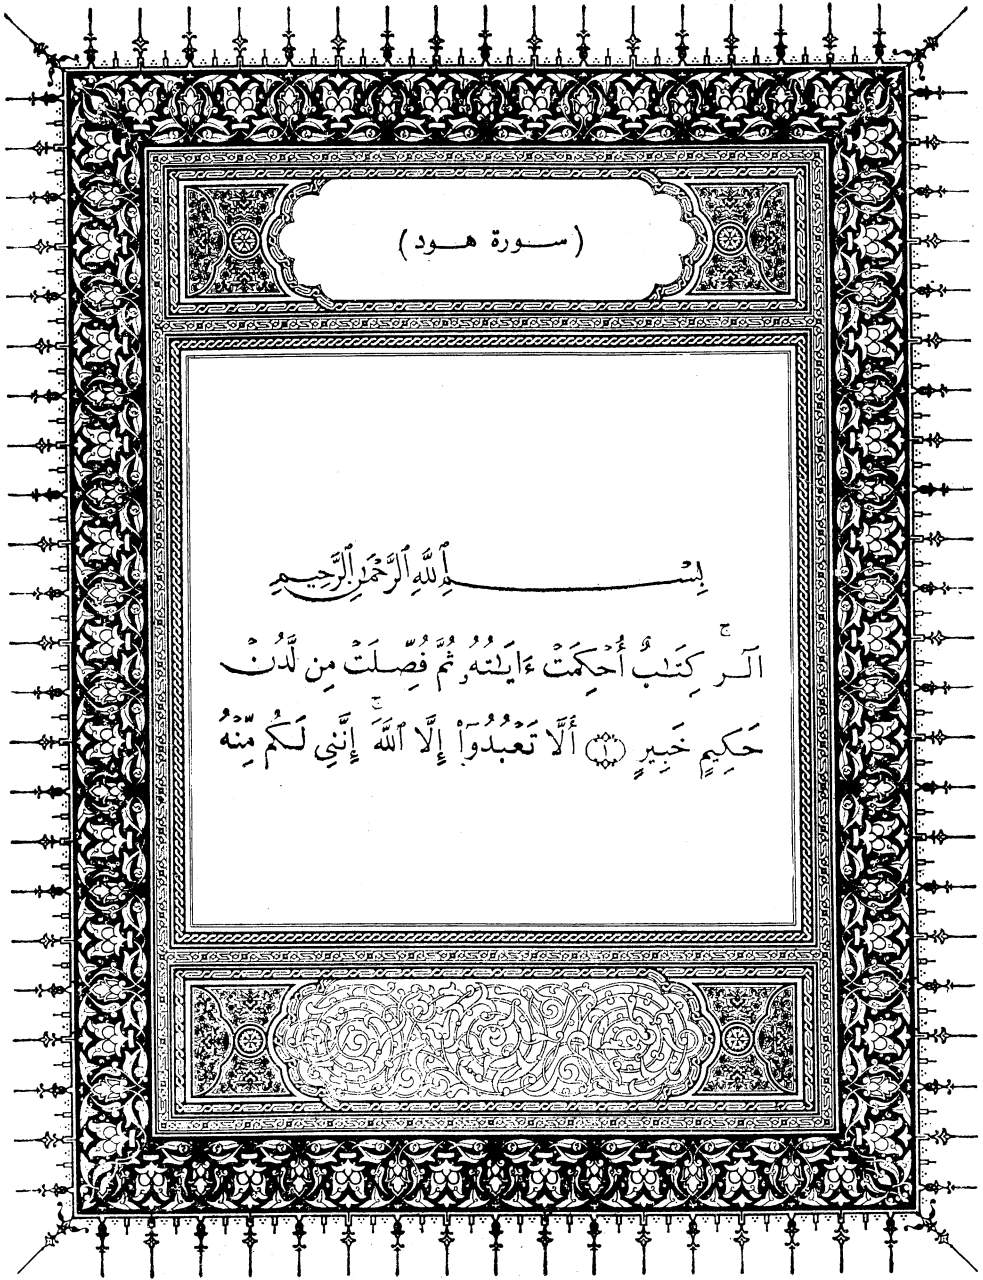 (سورة هود)
بِسْمِ ٱللَّهِ ٱلرَّحْمَـٰنِ ٱلرَّحِيمِ
الٓـر ۚ كِتَـٰبٌ أُحْكِمَتْ ءَايَـٰتُهُۥ ثُمَّ فُصِّلَتْ مِن لَّدُنْ
حَكِيمٍ خَبِيرٍ ﴿١﴾ أَلَّا تَعْبُدُوٓا۟ إِلَّا ٱللَّهَ ۚ إِنَّنِى لَكُم مِّنْهُ